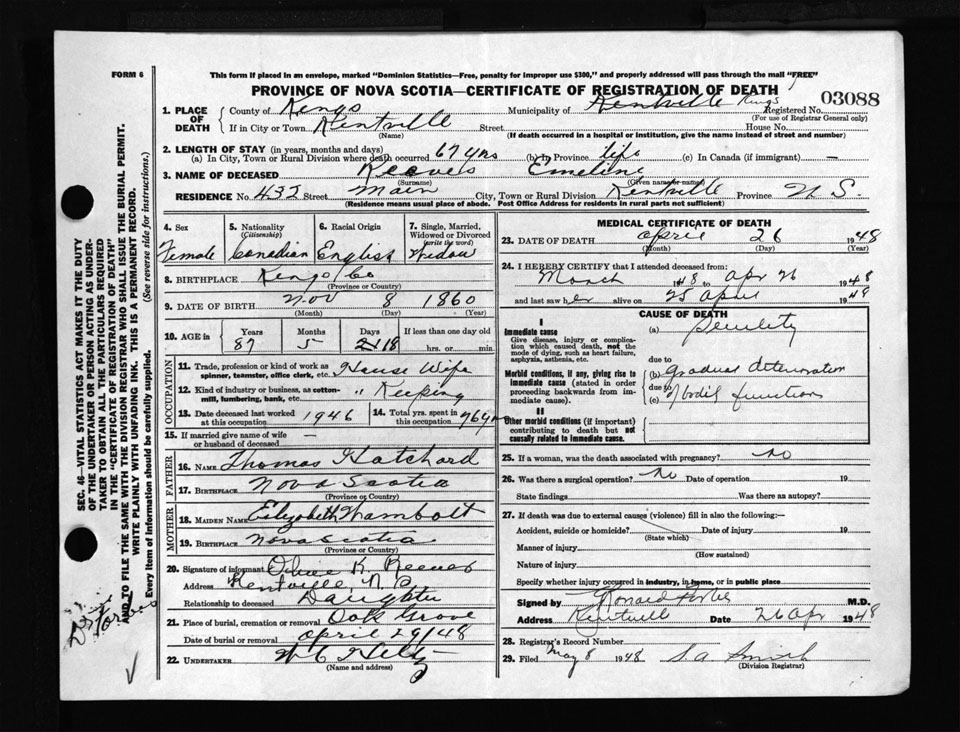 FORM 6
This form if placed in an envelope, marked "Dominion Statistics—Free, penalty for improper use $300," and properly addressed will pass through the mail "FREE"
PROVINCE OF NOVA SCOTIA—CERTIFICATE OF REGISTRATION OF DEATH
03088
1. PLACE OF DEATH County of Kings Municipality of Kentville Kings Registered No.
(For use of Registrar General only)
If in City or Town Kentville Street House No.
(Name) (If death occurred in a hospital or institution, give the name instead of street and number)
2. LENGTH OF STAY (in years, months and days)
(a) In City, Town or Rural Division where death occurred 67 yrs (b) In Province life (c) In Canada (if immigrant) —
3. NAME OF DECEASED Reeves Emeline
(Surname) (Given name or names)
RESIDENCE No. 432 Street Main City, Town or Rural Division Kentville Province N S.
(Residence means usual place of abode. Post Office Address for residents in rural parts not sufficient)
4. Sex Female
5. Nationality (Citizenship) Canadian
6. Racial Origin English
7. Single, Married, Widowed or Divorced (write the word) Widow
8. BIRTHPLACE Kings Co
(Province or Country)
9. DATE OF BIRTH Nov 8 1860
(Month) (Day) (Year)
10. AGE in Years Months Days If less than one day old
87 5 18 hrs. or min.
OCCUPATION
11. Trade, profession or kind of work as spinner, teamster, office clerk, etc. House Wife
12. Kind of industry or business, as cotton-mill, lumbering, bank, etc. " Keeping
13. Date deceased last worked at this occupation 1946
14. Total yrs. spent in this occupation
15. If married give name of wife or husband of deceased —
FATHER
16. NAME Thomas Hatchard
17. BIRTHPLACE Nova Scotia
(Province or Country)
MOTHER
18. MAIDEN NAME Elizabeth Wambolt
19. BIRTHPLACE Nova Scotia
(Province or Country)
20. Signature of informant Olive K. Reeves
Address Kentville N. S.
Relationship to deceased Daughter
21. Place of burial, cremation or removal Oak Grove
Date of burial or removal April 29/48
22. UNDERTAKER
(Name and address)
MEDICAL CERTIFICATE OF DEATH
23. DATE OF DEATH April 26 1948
(Month) (Day) (Year)
24. I HEREBY CERTIFY that I attended deceased from:
March 1948 to Apr 26 1948
and last saw her alive on 25 April 1948
CAUSE OF DEATH
I
Immediate cause (a) Senility
Give disease, injury or complication which caused death, not the mode of dying, such as heart failure, asphyxia, asthenia, etc.
due to
Morbid conditions, if any, giving rise to immediate cause (stated in order proceeding backwards from immediate cause). (b) gradual deterioration
due to
(c) of bodily function
II
Other morbid conditions (if important) contributing to death but not causally related to immediate cause.
25. If a woman, was the death associated with pregnancy? no
26. Was there a surgical operation? no Date of operation 19
State findings Was there an autopsy?
27. If death was due to external causes (violence) fill in also the following:—
Accident, suicide or homicide? Date of injury 19
(State which)
Manner of injury
(How sustained)
Nature of injury
Specify whether injury occurred in industry, in home, or in public place
Signed by Ronald Forbes M.D.
Address Kentville Date 26 Apr 1948
28. Registrar's Record Number
29. Filed May 8 1948 S. A. Smith
(Division Registrar)
SEC. 46—VITAL STATISTICS ACT MAKES IT THE DUTY
OF THE UNDERTAKER OR PERSON ACTING AS UNDER-
TAKER TO OBTAIN ALL THE PARTICULARS REQUIRED
IN THE "CERTIFICATE OF REGISTRATION OF DEATH"
AND TO FILE THE SAME WITH THE DIVISION REGISTRAR WHO SHALL ISSUE THE BURIAL PERMIT.
WRITE PLAINLY WITH UNFADING INK. THIS IS A PERMANENT RECORD.
Every item of information should be carefully supplied. (See reverse side for instructions.)